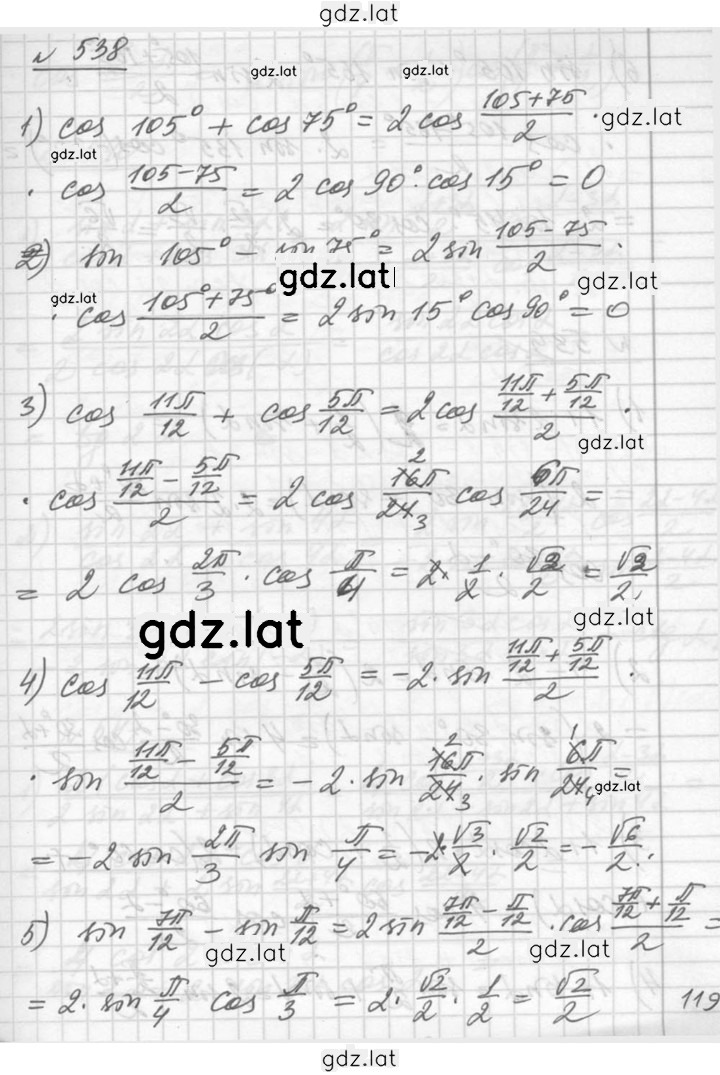 gdz.lat
№ 538
gdz.lat gdz.lat
1) cos 105° + cos 75° = 2 cos (105+75)/2 ·
gdz.lat
gdz.lat
· cos (105-75)/2 = 2 cos 90° · cos 15° = 0
2) sin 105° - sin 75° = 2 sin (105-75)/2 ·
gdz.lat
gdz.lat
· cos (105°+75°)/2 = 2 sin 15° cos 90° = 0
3) cos 11π/12 + cos 5π/12 = 2 cos (11π/12 + 5π/12)/2 ·
gdz.lat
· cos (11π/12 - 5π/12)/2 = 2 cos 16π/24 2 3 cos 6π/24 =
= 2 cos 2π/3 · cos π/4 = 2 · 1/2 · √2/2 = √2/2.
gdz.lat
gdz.lat
4) cos 11π/12 - cos 5π/12 = -2 · sin (11π/12 + 5π/12)/2 ·
· sin (11π/12 - 5π/12)/2 = -2 · sin 16π/24 2 3 · sin 6π/24 1 4 =
gdz.lat
= -2 sin 2π/3 sin π/4 = -2 · √3/2 · √2/2 = -√6/2.
5) sin 7π/12 - sin π/12 = 2 sin (7π/12 - π/12)/2 · cos (7π/12 + π/12)/2 =
gdz.lat gdz.lat
= 2 · sin π/4 cos π/3 = 2 · √2/2 · 1/2 = √2/2
119
gdz.lat